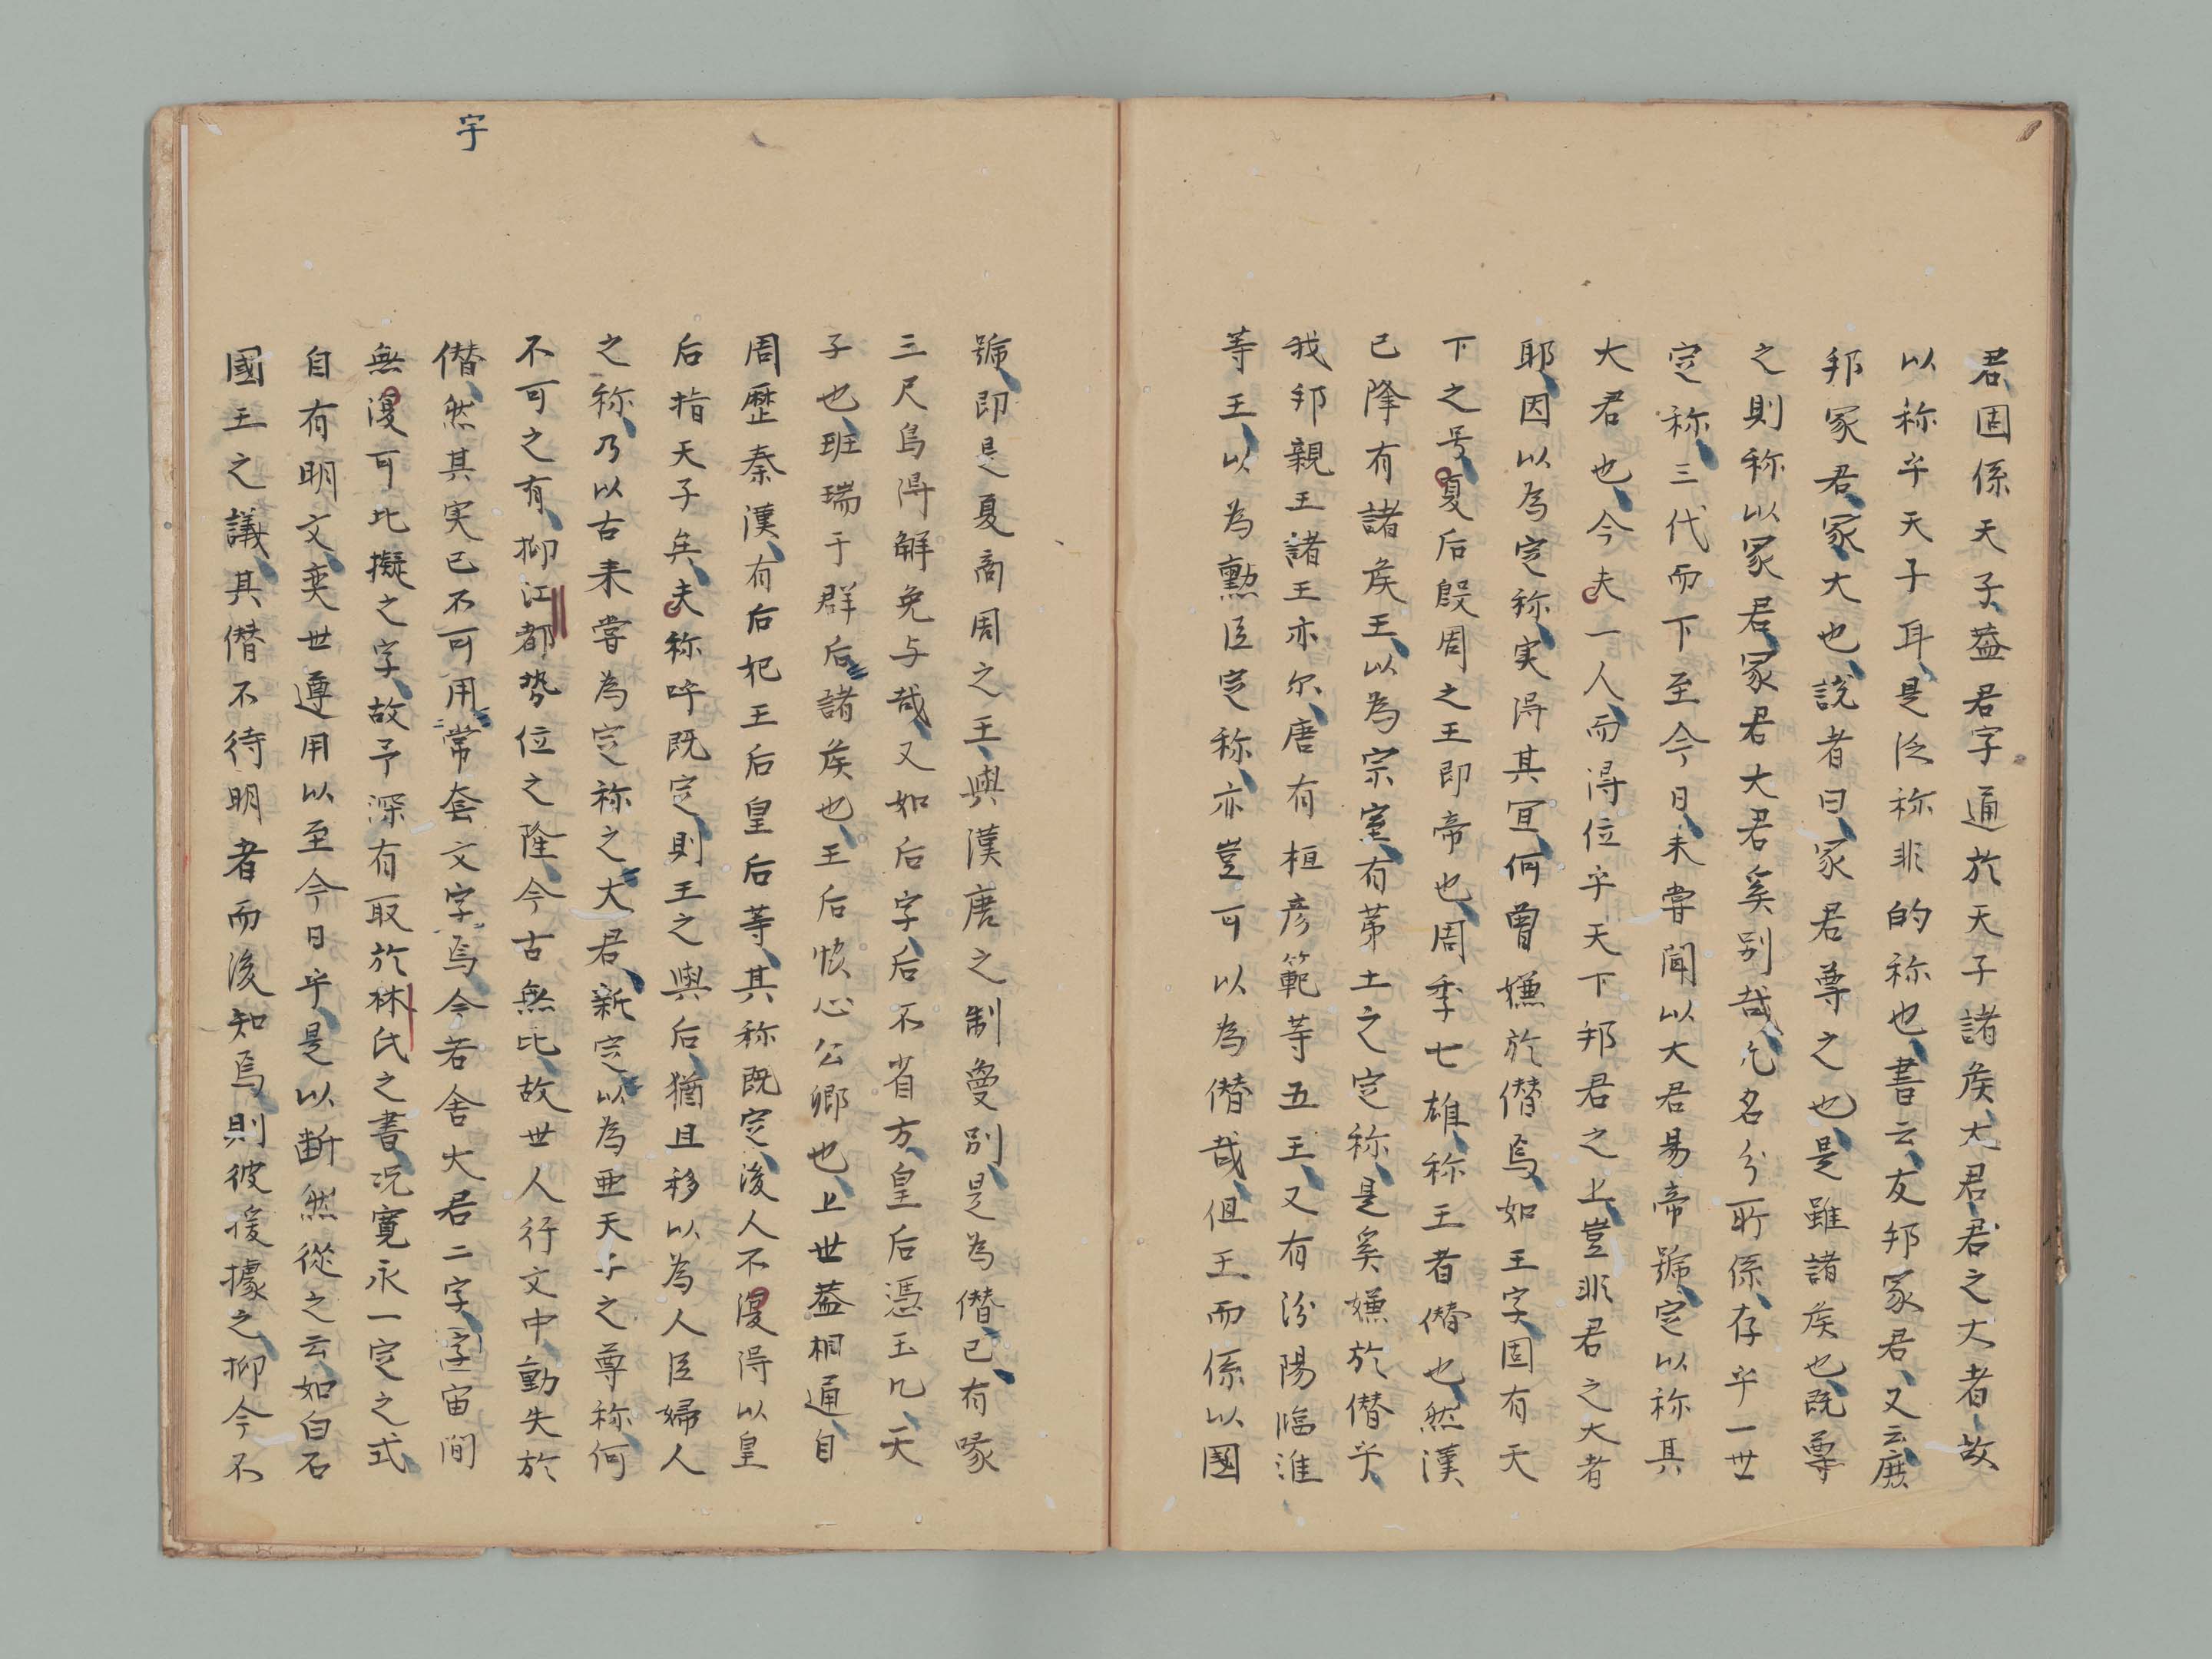 君固係天子蓋君字通於天子諸矦、大君、君之大者、故
以称乎天子耳、是泛称非的称也、書云、友邦冢君、又云、庶
邦冢君、冢大也、説者曰、冢君尊之也、是雖諸矦也、既尊
之則称以冢君、冢君大君奚別哉、凡名分所係、存乎一世
定称、三代而下至今日、未嘗聞以大君易帝號、定以称其
大君也、今夫一人、而得位乎天下邦君之上、豈非君之大者
耶、因以為定称、実得其宜、何曽嫌於僭焉、如王字、固有天
下之号、夏后殷周之王即帝也、周季七雄、称王者僭也、然漢
已降有諸矦王、以為宗室、有茅土之定称、是奚嫌於僭乎、
我邦親王諸王亦尔、唐有桓彦範等五王、又有汾陽臨淮
等王、以為勲臣定称、亦豈可以為僭哉、但王而係以國
號、即是夏商周之王、與漢唐之制敻別、是為僭已、有喙
三尺烏得解免与哉、又如后字、后不省方、皇后憑玉几、天
子也、班瑞于群后、諸矦也、王后悅心公卿也、上世蓋相通、自
周歴秦漢、有后妃王后皇后等、其称既定、後人不漫得以皇
后指天子矣、夫称呼既定、則王之與后、猶且移以為人臣婦人
之称、乃以古来嘗為定称之大君、新定以為亜天子之尊称、何
不可之有、抑江都勢位之隆、今古無比、故世人行文中、動失於
僭、然其実已不可用常套文字焉、今者舍大君二字、字宙間
宇
無漫可比擬之字、故予深有取於林氏之書、况寛永一定之式、
自有明文、奕世遵用以至今日乎、是以断然從之云、如白石
國王之議、其僭不待明者而後知焉、則彼援據之、抑今不